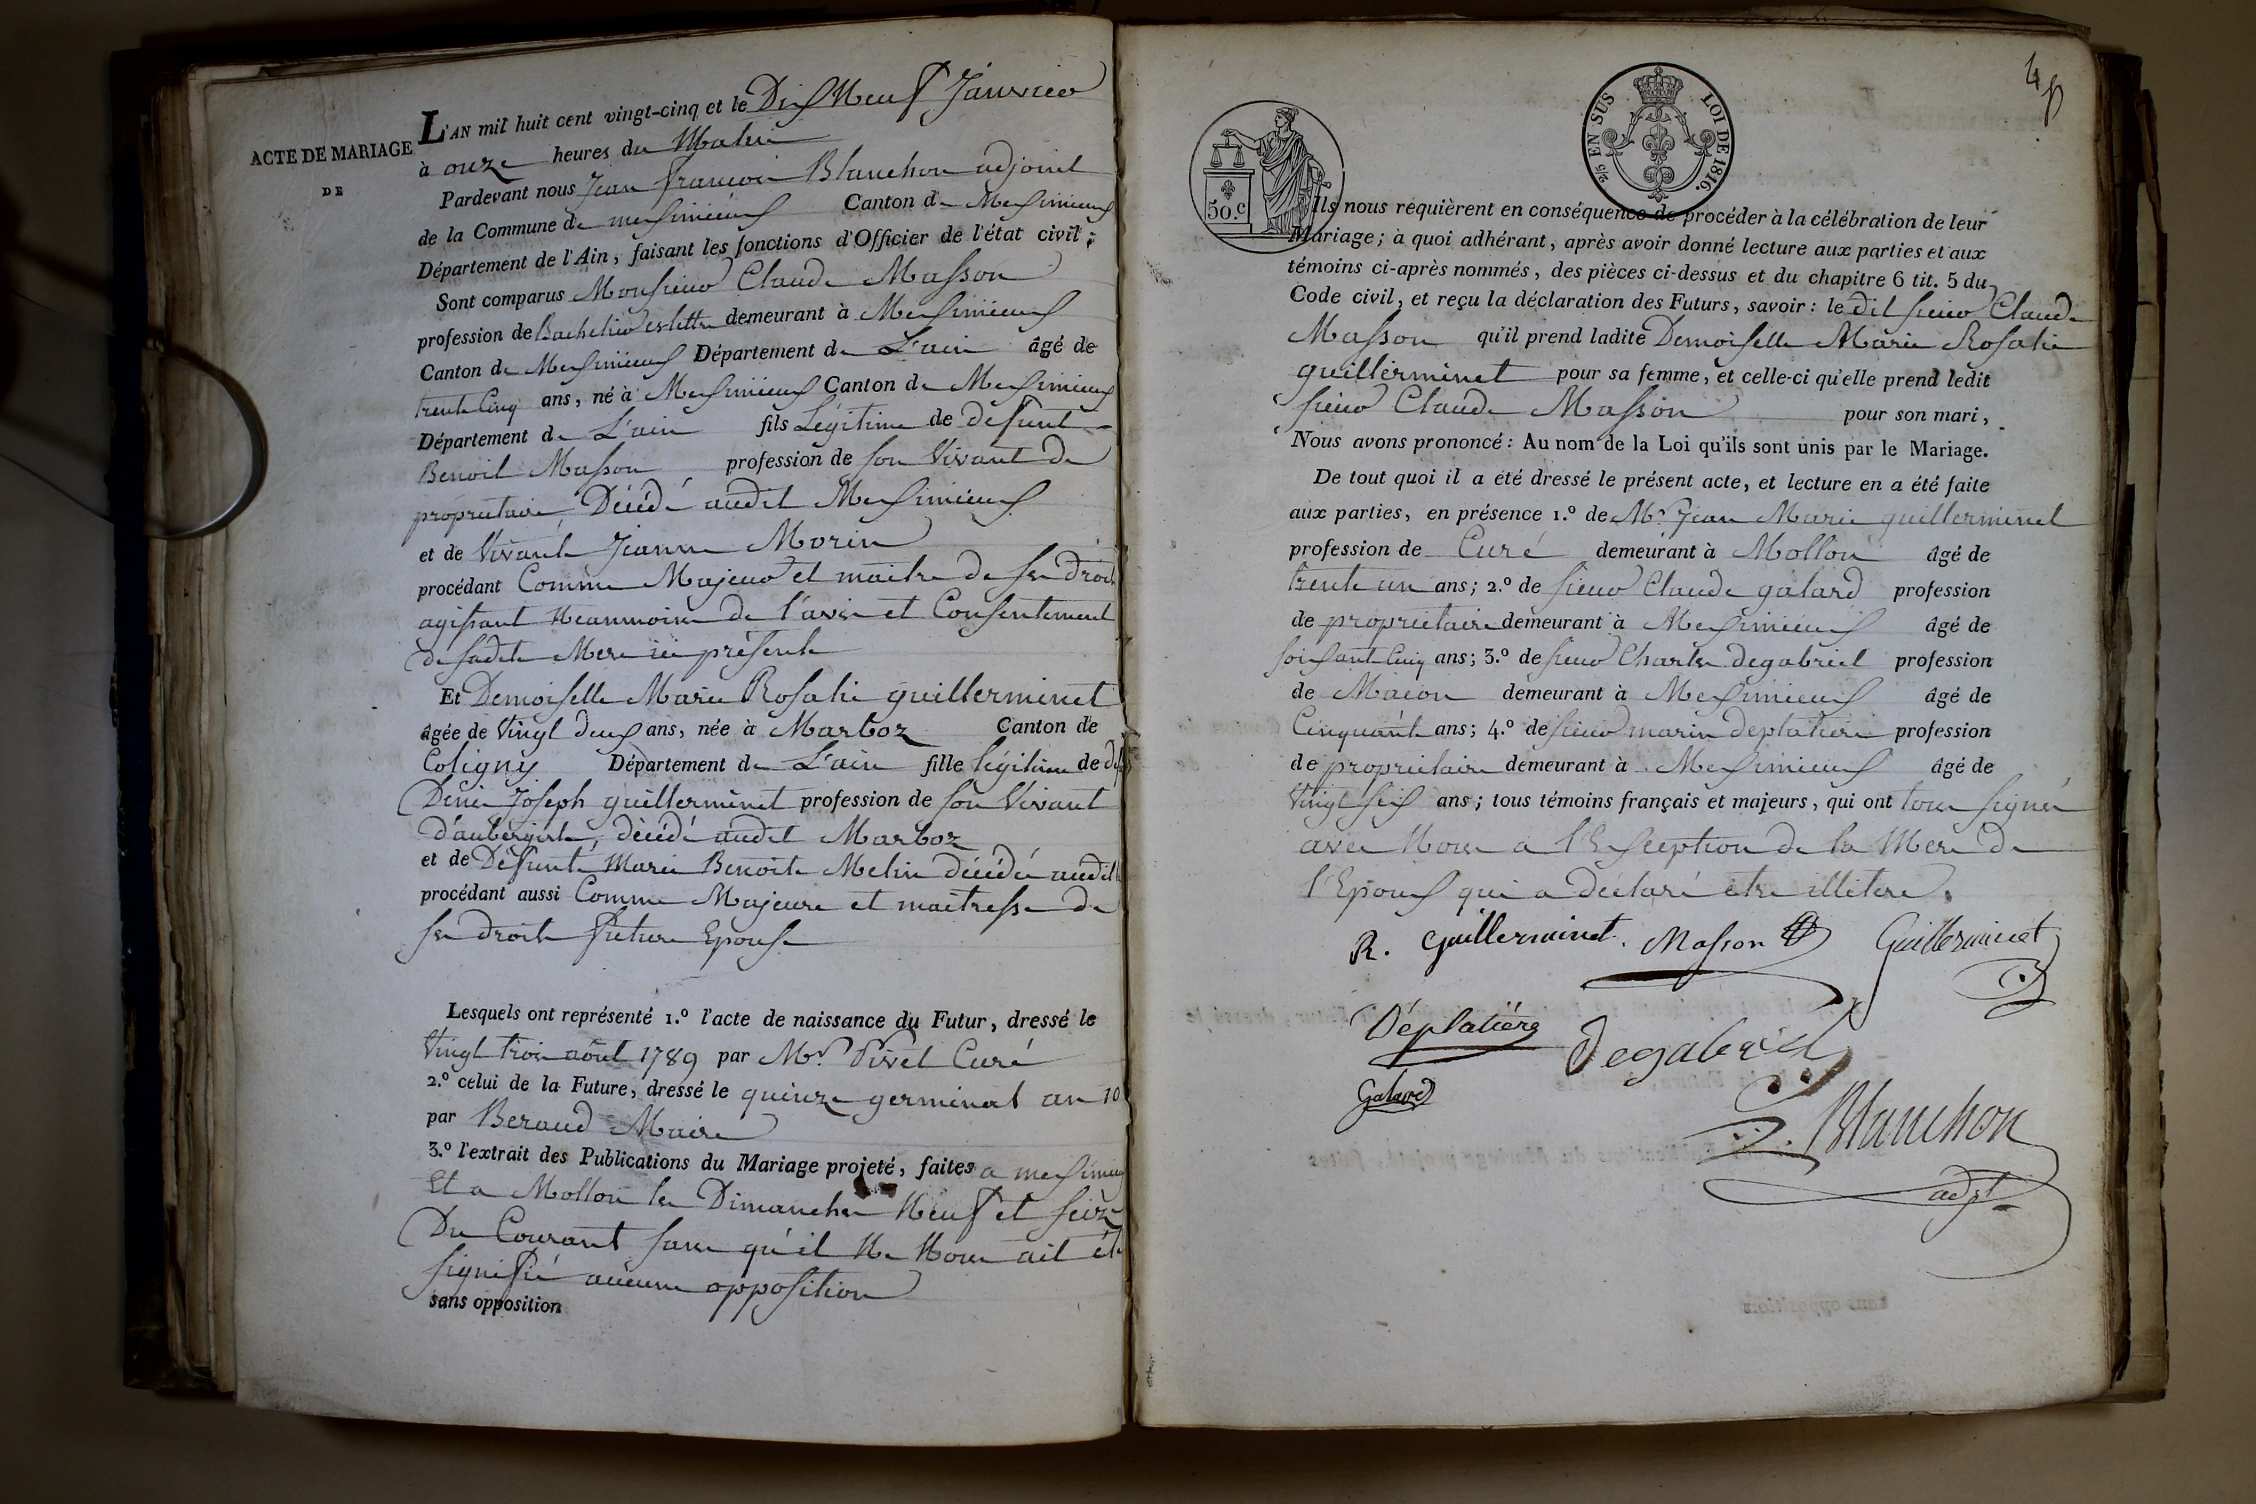 ACTE DE MARIAGE
DE
L'AN mil huit cent vingt-cinq et le Dix Neuf Janvier
à onze heures du Matin
Pardevant nous Jean françois Blanchon adjoint
de la Commune de meximieux Canton de Meximieux
Département de l'Ain, faisant les fonctions d'Officier de l'état civil;
Sont comparus Monsieur Claude Masson
profession de Bachelier es-lettre demeurant à Meximieux
Canton de Meximieux Département de L'ain âgé de
trente Cinq ans, né à Meximieux Canton de Meximieux
Département de L'ain fils Légitime de defunt
Benoit Masson profession de son Vivant de
propriétaire, Décédé audit Meximieux
et de Vivante Jeanne Morin
procédant Comme Majeur et maitre de ses droits
agissant Neanmoins de l'avis et Consentement
de sadite Mere ici présente
Et Demoiselle Marie Rosalie guillerminet
âgée de Vingt deux ans, née à Marboz Canton de
Coligny Département de L'ain fille légitime de
Denis Joseph guillerminet profession de son Vivant
d'aubergiste, décédé audit Marboz
et de Défunte Marie Benoite Melin décédée audit
procédant aussi Comme Majeure et maitresse de
ses droits future Epouse
Lesquels ont représenté 1.º l'acte de naissance du Futur, dressé le
Vingt trois aout 1789 par Mr. Pivet Curé
2.º celui de la Future, dressé le quinze germinal an 10
par Beraud Maire
3.º l'extrait des Publications du Mariage projeté, faites a meximieux
Et a Mollon les Dimanches Neuf et seize
Du Courant sans qu'il Ne Nous ait été
signifié aucune opposition
sans opposition
48
2/5 EN SUS LOI DE 1816.
50.c
Ils nous requièrent en conséquence de procéder à la célébration de leur
Mariage; à quoi adhérant, après avoir donné lecture aux parties et aux
témoins ci-après nommés, des pièces ci-dessus et du chapitre 6 tit. 5 du
Code civil, et reçu la déclaration des Futurs, savoir: le dit sieur Claude
Masson qu'il prend ladite Demoiselle Marie Rosalie
guillerminet pour sa femme, et celle-ci qu'elle prend ledit
sieur Claude Masson pour son mari,
Nous avons prononcé: Au nom de la Loi qu'ils sont unis par le Mariage.
De tout quoi il a été dressé le présent acte, et lecture en a été faite
aux parties, en présence 1.º de Mr. Jean Marie guillerminet
profession de Curé demeurant à Mollon âgé de
trente un ans; 2.º de sieur Claude galard profession
de propriétaire demeurant à Meximieux âgé de
soixante Cinq ans; 3.º de sieur Charles degabriel profession
de Macon demeurant à Meximieux âgé de
Cinquante ans; 4.º de sieur marin deplatiere profession
de propriétaire demeurant à Meximieux âgé de
Vingt six ans; tous témoins français et majeurs, qui ont tous signés
avec Nous a l'Exception de la Mere de
l'Epoux qui a déclaré etre illitere.
R. Guillerminet. Masson Guillerminet
Déplatière Degabriel
Galard
Blanchon
adjt